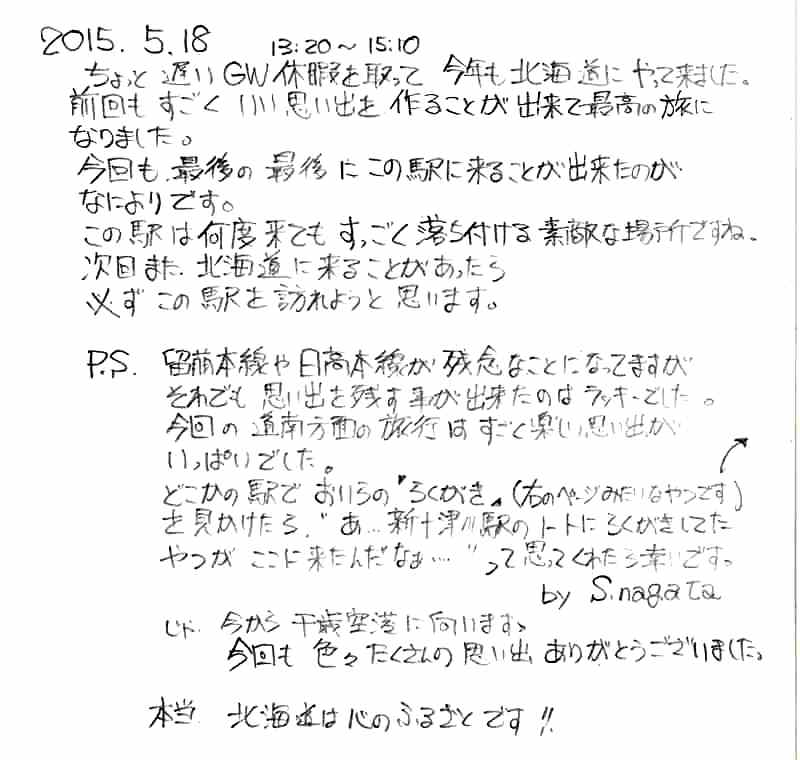 2015. 5.18 13:20〜15:10
ちょっと 遅い GW休暇を取って 今年も北海道に やって来ました。
前回も すごく いい思い出を 作ることが 出来て最高の旅に
なりました。
今回も、最後の 最後 に この駅に来ることが出来たのが
なによりです。
この駅は何度来ても すっごく落ち付ける素敵な場所ですね。
次回また、北海道に来ることがあったら
必ず この駅を訪れようと思います。
P.S. 留萌本線や日高本線が残念なことになってますが
それでも 思い出を残す事が出来たのはラッキーでした。
今回の 道南方面の旅行は すごく楽しい思い出が
いっぱいでした。
どこかの駅で おいらの『らくがき』(右のページみたいなやつです)
を見かけたら、"あ…新十津川駅のノートにらくがきしてた
やつが ここに来たんだなぁ…"って思ってくれたら幸いです。
by S.nagata
じゃ、今から 千歳空港に向います、
今回も 色々たくさんの思い出、ありがとうございました。
本当、北海道は心のふるさとです!!